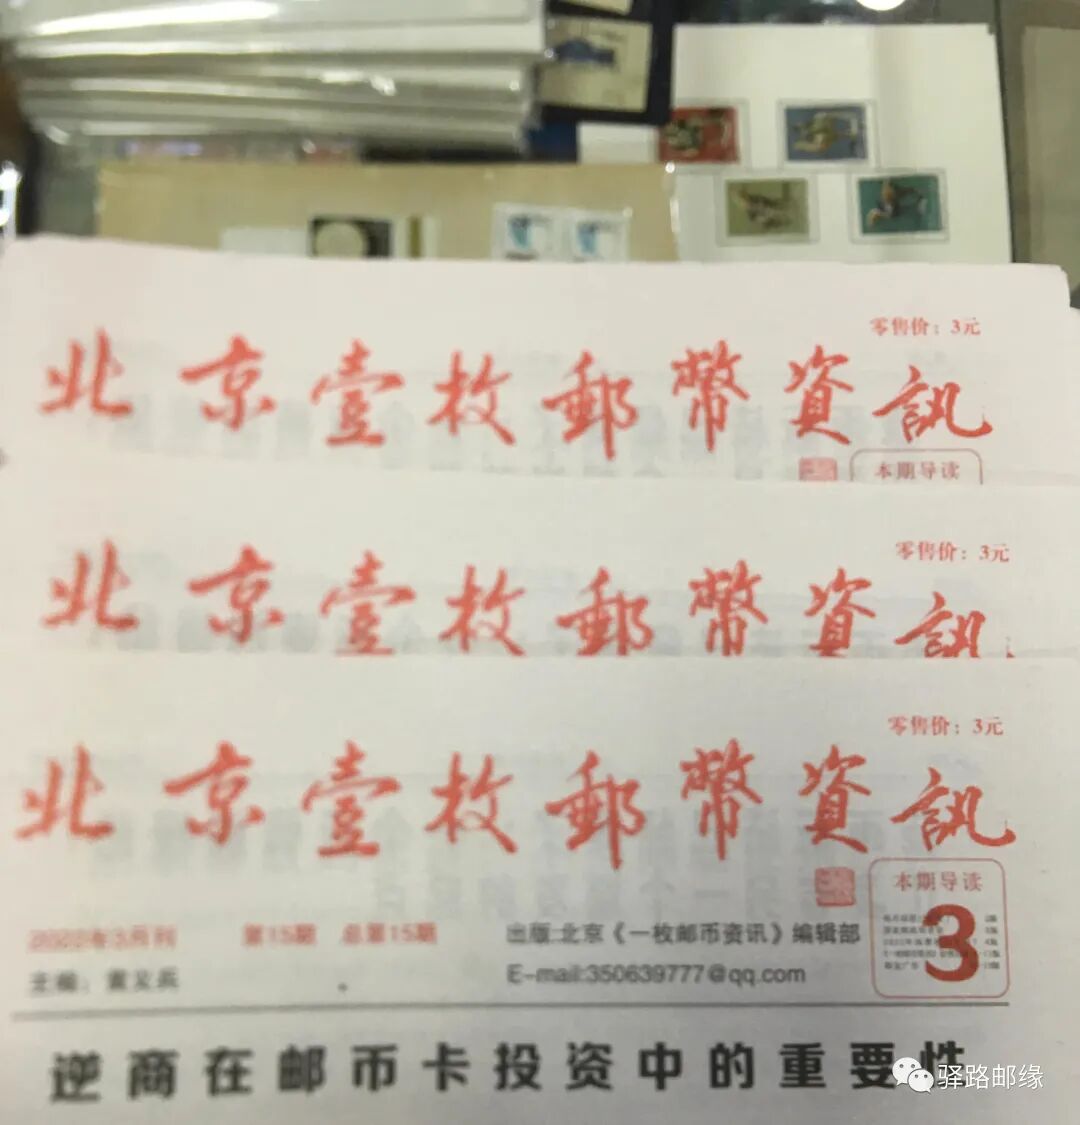 零售价：3元
北京壹枚郵幣資訊
本期导读
零售价：3元
北京壹枚郵幣資訊
零售价：3元
北京壹枚郵幣資訊
本期导读
3
2022年3月刊 第15期 总第15期
出版:北京《一枚邮币资讯》编辑部
主编：黄义兵
E-mail:350639777@qq.com
逆商在邮币卡投资中的重要性
驿路邮缘